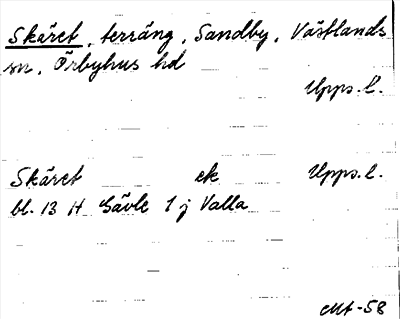 Skäret, terräng, Sandby, Västlands
sn, Örbyhus hd
Upps. l.
Skäret ek Upps. l.
bl. 13 H Gävle 1 j Valla
Mt-58